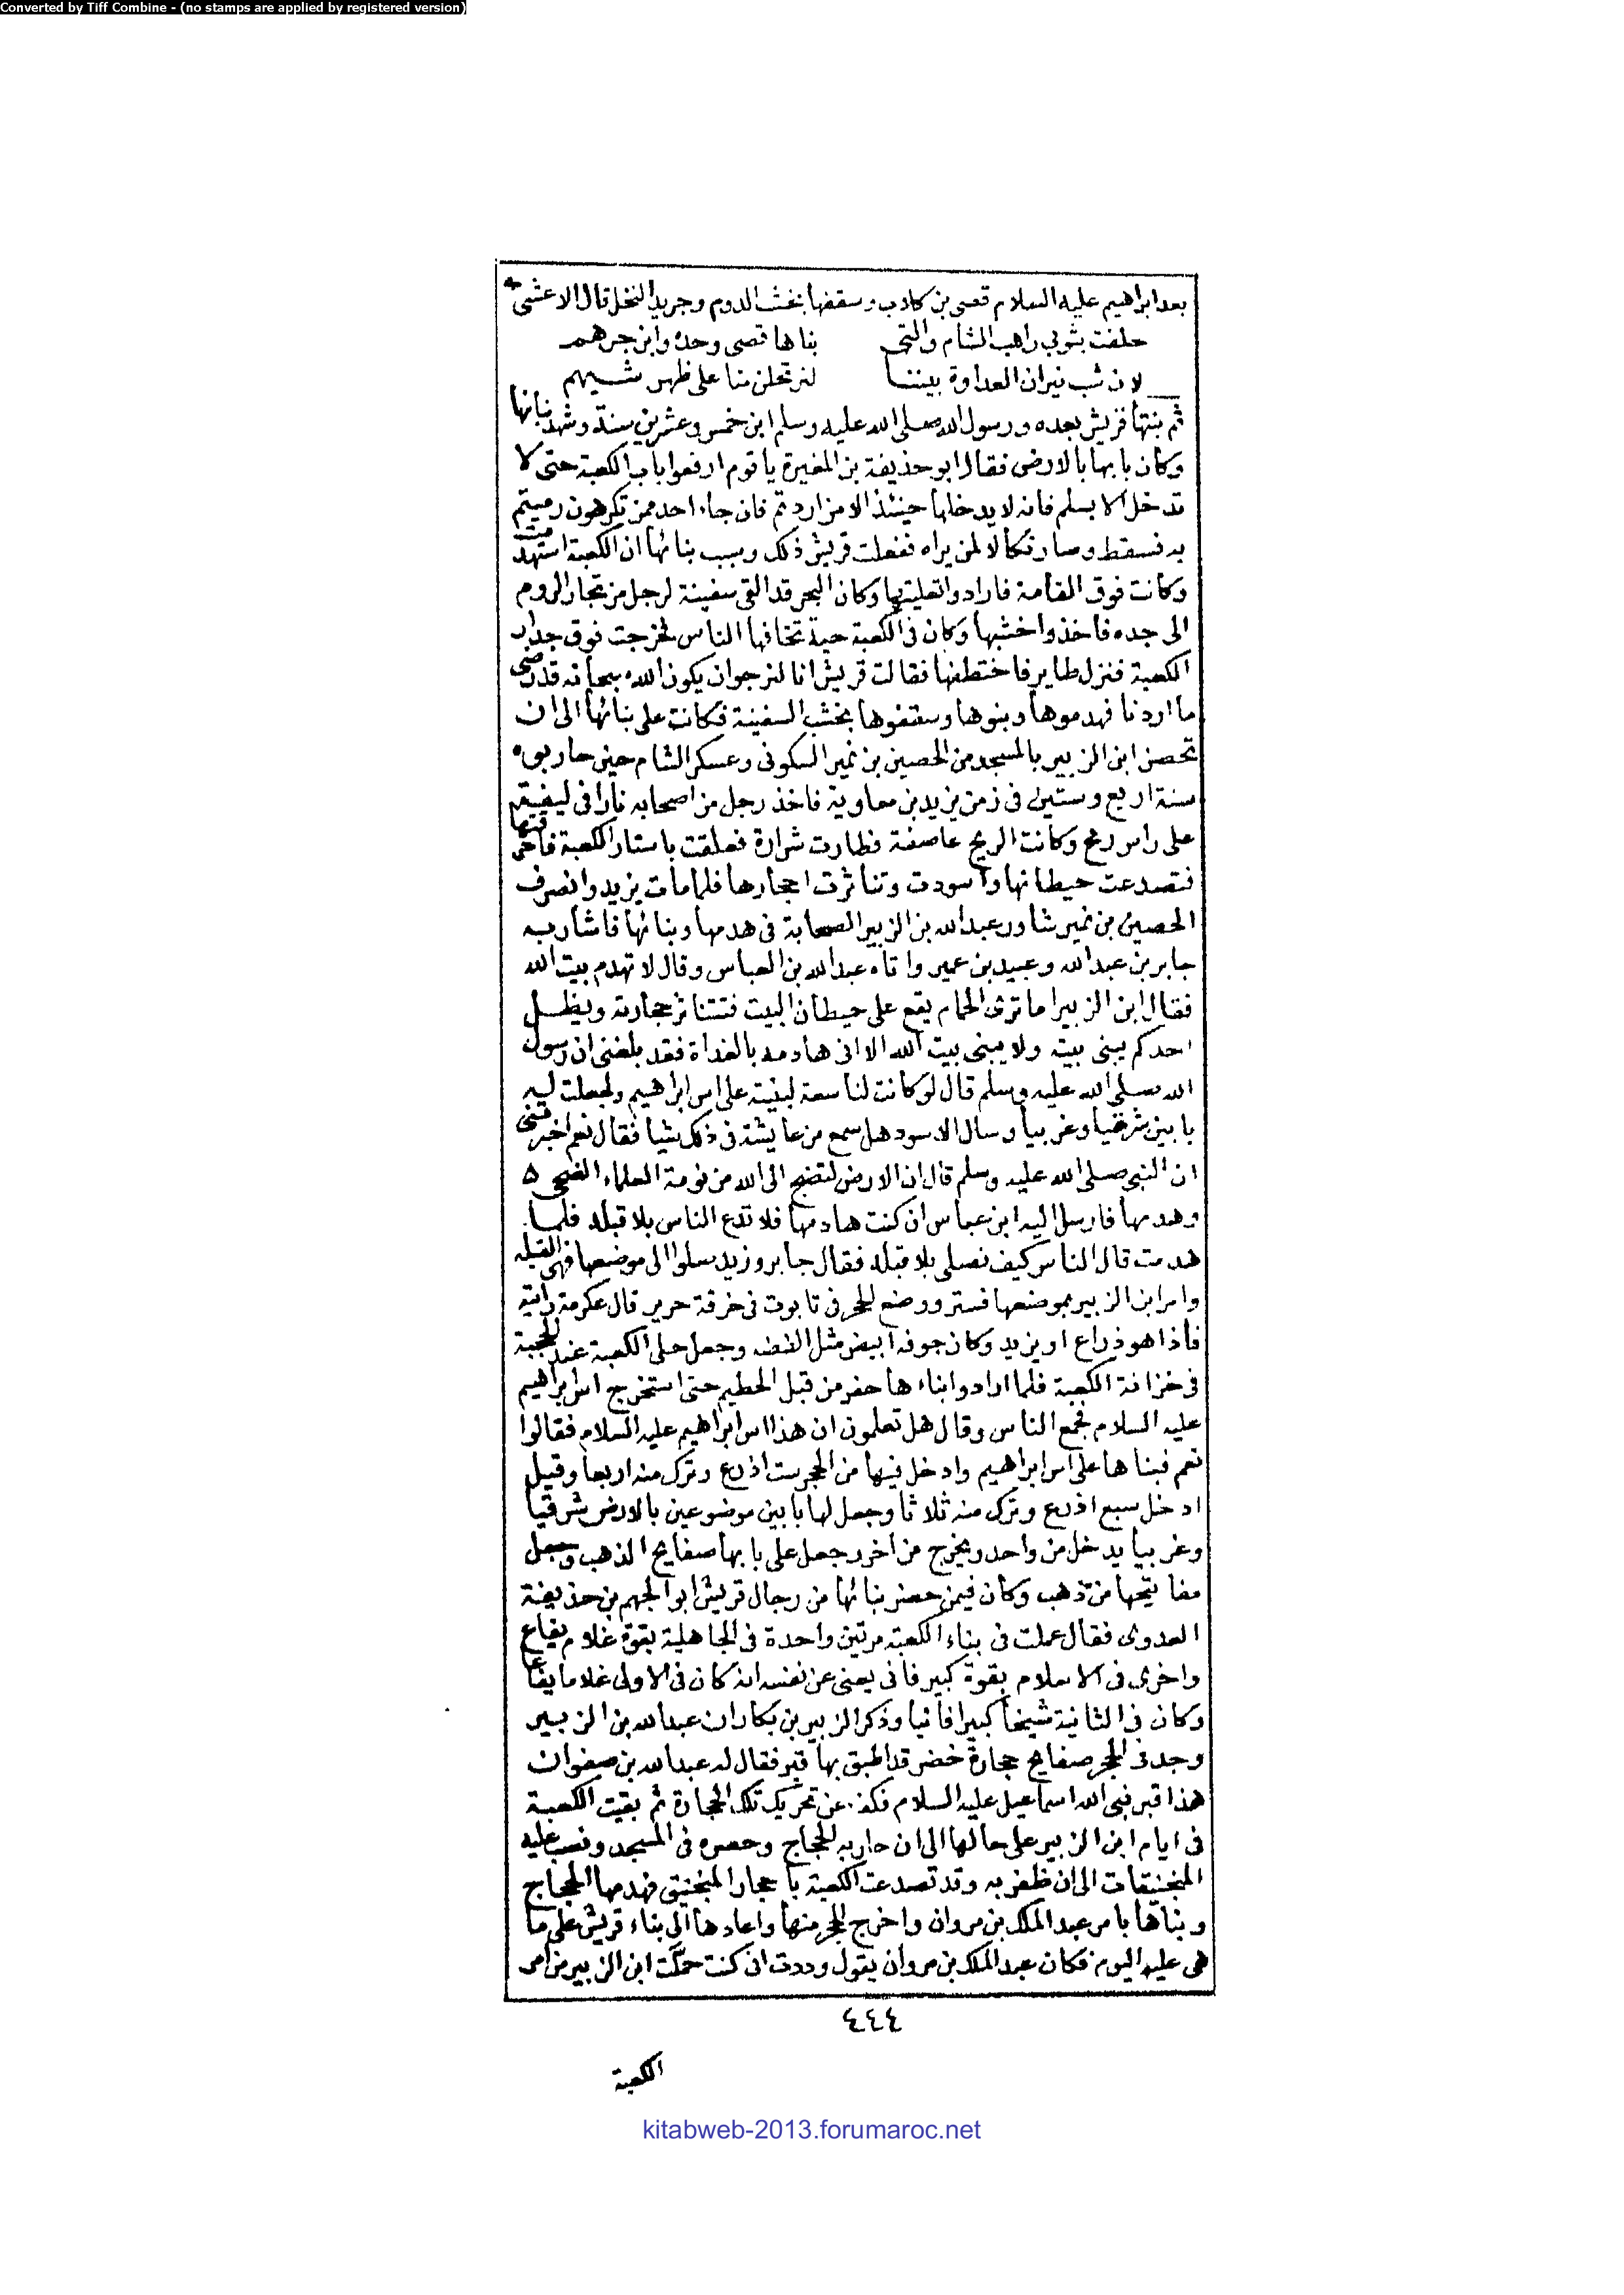 Converted by Tiff Combine - (no stamps are applied by registered version)
بعد ابراهيم عليه السلام قصى بن كلاب وسقفها بخشب الدوم وجريد النخل قال الاعشى
حلفت بثوبي راهب الشام والتى بناها قصى وحده وابن جرهم
لان شب نيران العداوة بيننا لنرتحلن منا على ظهر شيهم
ثم بنتها قريش بعده ورسول الله صلى الله عليه وسلم ابن خمس وعشرين سنة وشهد بنائها
وكان بابها بالارض فقال ابو حذيفة بن المغيرة يا قوم ارفعوا باب الكعبة حتى لا
تدخل الا بسلم فانه لا يدخلها حينئذ الا من اردتم فان جاء احد ممن تكرهون رميتم
به فسقط وصار نكالا لمن يراه ففعلت قريش ذلك وسبب بنائها ان الكعبة استهدمت
وكانت فوق القامة فارادوا تعليتها وكان البحر قد القى سفينة لرجل من تجار الروم
الى جده فاخذوا خشبها وكان فى الكعبة حية تخافها الناس فخرجت فوق جدار
الكعبة فنزل طاير فاختطفها فقالت قريش انا لنرجوا ن يكون الله سبحانه قد رضى
ما اردنا فهدموها وبنوها وسقفوها بخشب السفينة فكانت على بنائها الى ان
تحصن ابن الزبير بالمسجد من الحصين بن نمير السكونى وعسكر الشام حين حاربوه
سنة اربع وستين فى زمن يزيد بن معاوية فاخذ رجل من اصحابه نارا فى ليفة
على راس رمح وكانت الريح عاصفة فطارت شرارة فعلقت باستار الكعبة فاحرقتها
فتصدعت حيطانها واسودت وتناثرت احجارها فلما مات يزيد وانصرف
الحصين بن نمير شاور عبد الله بن الزبير الصحابة فى هدمها وبنائها فاشار به
جابر بن عبد الله وعبيد بن عمير واتاه عبد الله بن العباس وقال لا تهدم بيت الله
فقال ابن الزبير اما ترى الحمام يقع على حيطان البيت فتتناثر حجارته ويظل
احدكم يبنى بيته ولا يبنى بيت الله الا انى هادمه بالغداة فقد بلغنى ان رسول
الله صلى الله عليه وسلم قال لو كانت لنا سعة لبنيته على اس ابراهيم ولجعلت له
بابين شرقيا وغربيا وسال الاسود هل سمع من عايشة فى ذلك شيا فقال نعم اخبرتنى
ان النبى صلى الله عليه وسلم قال ان الارض لتضج الى الله من نومة العلماء الضحى ۵
وهدمها فارسل اليه ابن عباس ان كنت هادمها فلا تدع الناس بلا قبلة فلما
هدمت قال الناس كيف نصلى بلا قبلة فقال جابر وزيد صلوا الى موضعها فهى القبلة
وامر ابن الزبير بموضعها فستر ووضع الحجر فى تابوت فى خرقة حرير قال عكرمة رايته
فاذا هو ذراع او يزيد وكان جوفه ابيض مثل الفضه وجعل حلى الكعبة عند الحجبة
فى خزانة الكعبة فلما ارادوا بناءها حفر من قبل الحطيم حتى استخرج اس ابراهيم
عليه السلام فجمع الناس وقال هل تعلمون ان هذا اس ابراهيم عليه السلام فقالوا
نعم فبناها على اس ابراهيم وادخل فيها من الحجر ست اذرع وترك منه اربعا وقيل
ادخل سبع اذرع وترك منه ثلاثا وجعل لها بابين موضوعين بالارض شرقيا
وغربيا يدخل من واحد ويخرج من اخر وجعل على بابها صفايح الذهب وجعل
مفاتيحها من ذهب وكان فيمن حضر بنائها من رجال قريش ابو الجهم بن حذيفة
العدوى فقال عملت فى بناء الكعبة مرتين واحدة فى الجاهلية بقوة غلام يفاع
واخرى فى الاسلام بقوة كبير فانى يعنى عن نفسه انه كان فى الاولى غلاما يفاعا
وكان فى الثانية شيخا كبيرا فانيا وذكر الزبير بن بكار ان عبد الله بن الزبير
وجد فى الحجر صفايح حجارة خضر قد اطبق بها قبر فقال له عبد الله بن صفوان
هذا قبر نبى الله اسماعيل عليه السلام فكف عن تحريك تلك الحجارة ثم بقيت الكعبة
فى ايام ابن الزبير على حالها الى ان حاربه الحجاج وحصره فى المسجد ونصب عليه
المنجنيقات الى ان ظفر به وقد تصدعت الكعبة باحجار المنجنيق فهدمها الحجاج
وبناها بامر عبد الملك بن مروان واخرج الحجر منها واعادها الى بناء قريش على ما
هى عليه اليوم فكان عبد الملك بن مروان يقول وددت انى كنت حملت ابن الزبير من امر
٤٤٤
الكعبة
kitabweb-2013.forumaroc.net